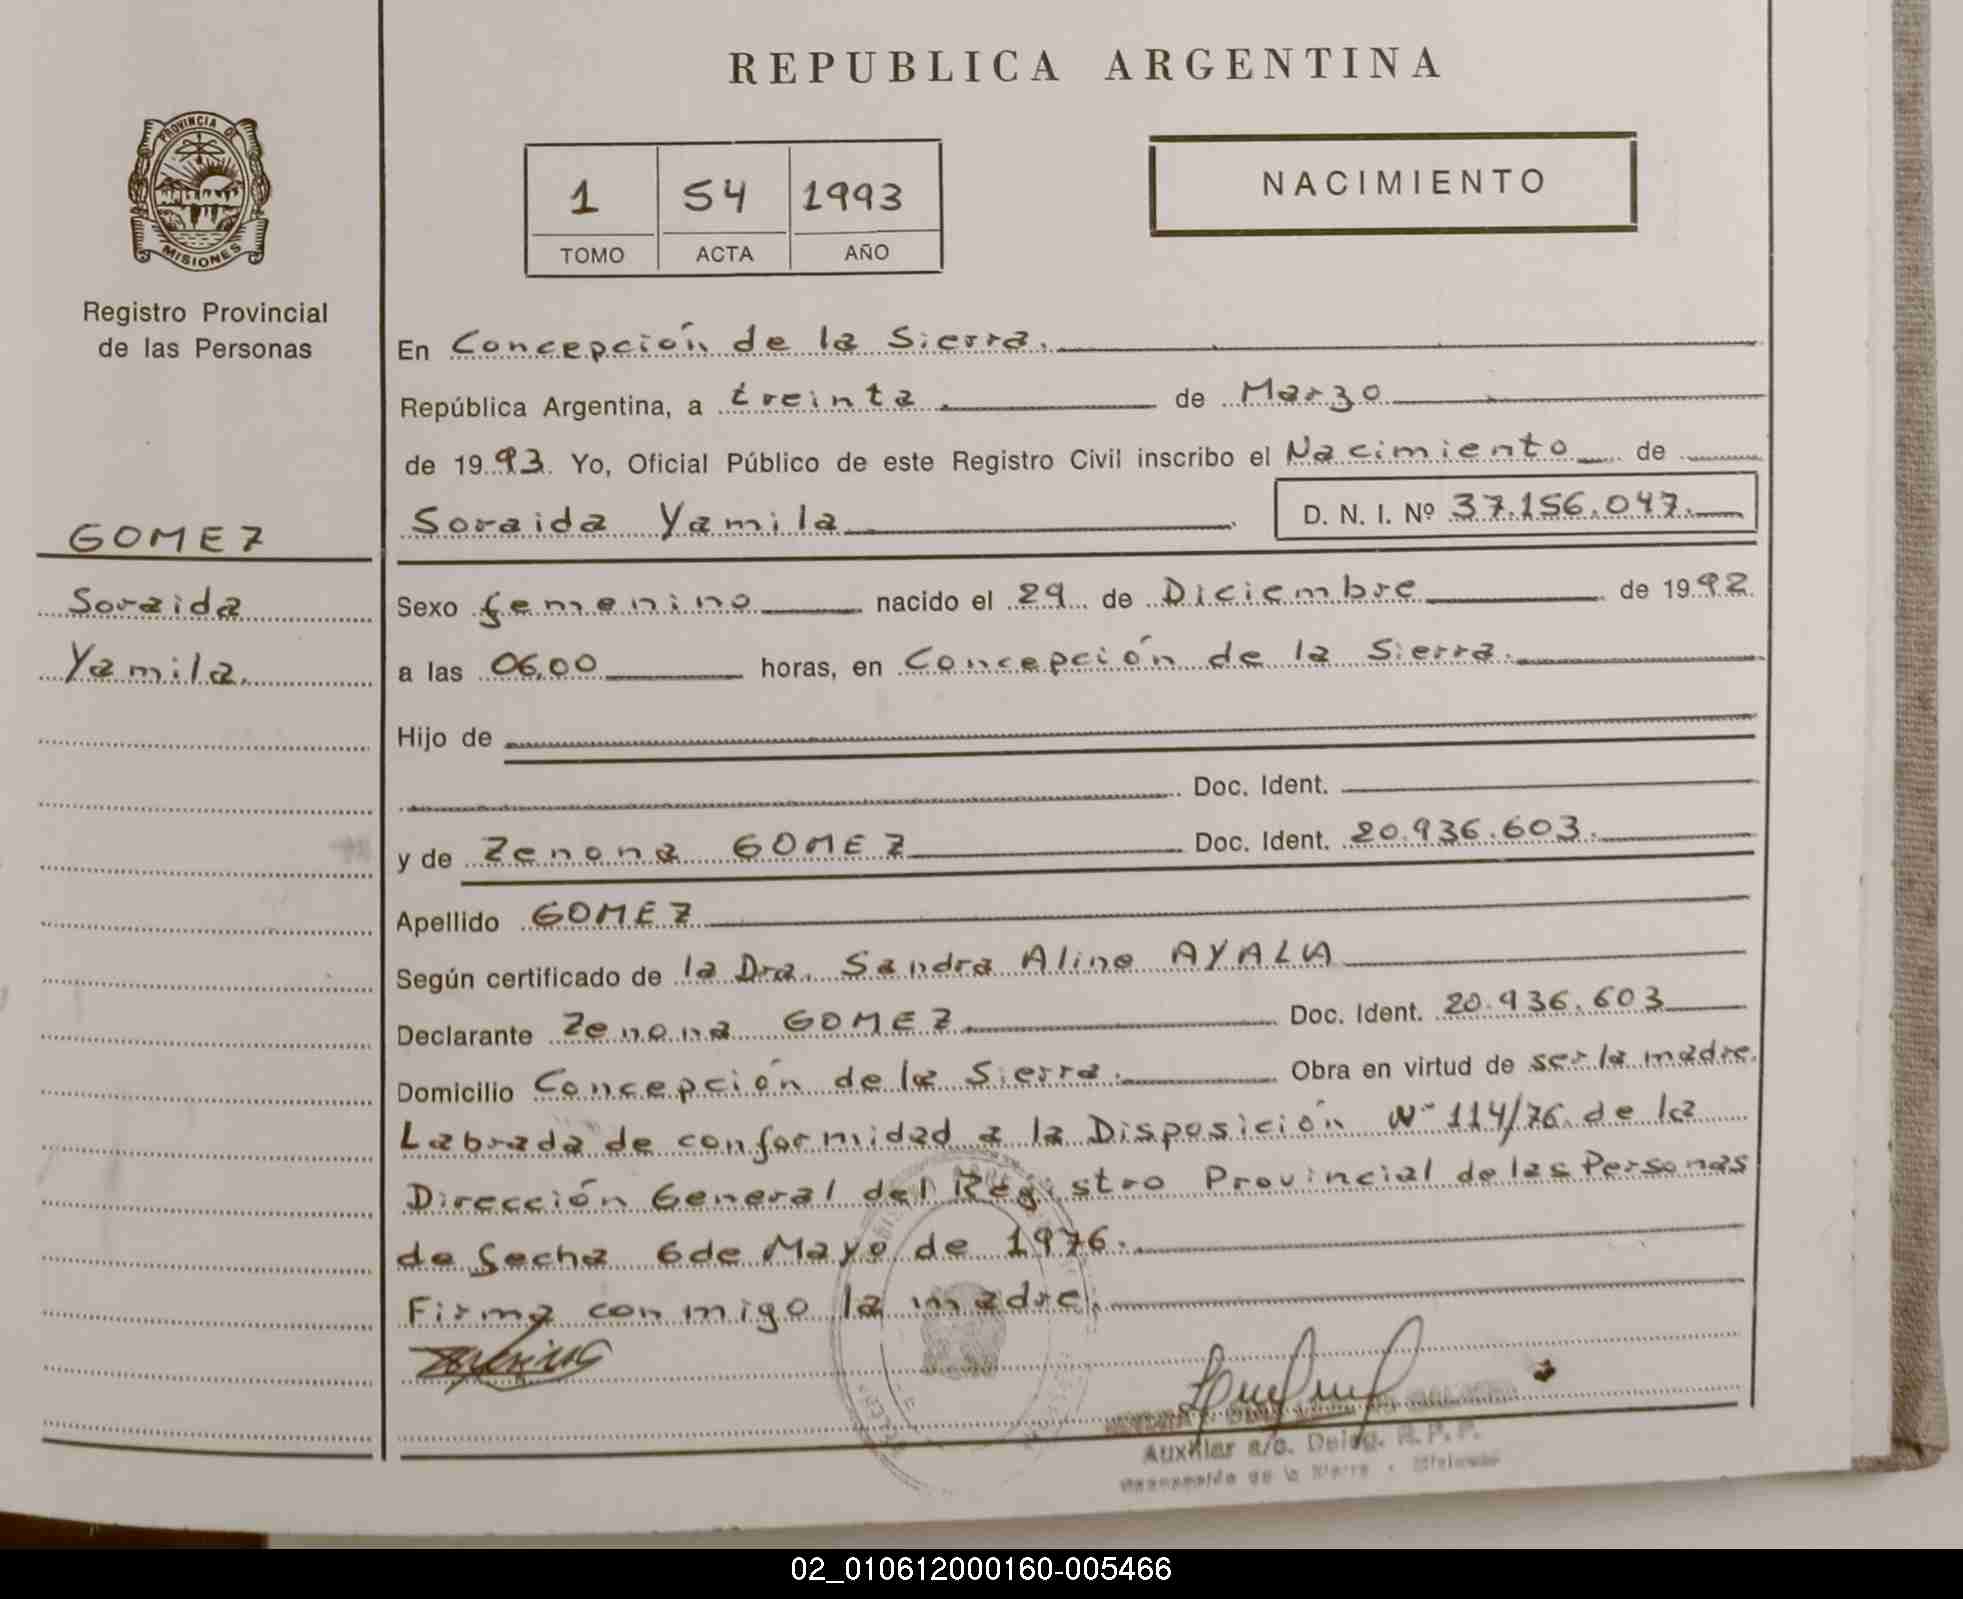 REPUBLICA ARGENTINA
PROVINCIA DE
MISIONES
Registro Provincial
de las Personas
1 54 1993
TOMO ACTA AÑO
NACIMIENTO
En Concepción de la Sierra.
República Argentina, a treinta de Marzo
de 1993. Yo, Oficial Público de este Registro Civil inscribo el Nacimiento de
Soraida Yamila D. N. I. Nº 37.156.047.
GOMEZ
Soraida
Yamila.
Sexo femenino nacido el 29 de Diciembre de 1992.
a las 06,00 horas, en Concepción de la Sierra.
Hijo de
Doc. Ident.
y de Zenona GOMEZ Doc. Ident. 20.936.603.
Apellido GOMEZ
Según certificado de la Dra. Sandra Aline AYALA
Declarante Zenona GOMEZ Doc. Ident. 20.936.603
Domicilio Concepción de la Sierra. Obra en virtud de ser la madre.
Labrada de conformidad a la Disposición Nº 114/76 de la
Dirección General del Registro Provincial de las Personas
de fecha 6 de Mayo de 1976.
Firma conmigo la madre.
Auxiliar a/c. Deleg. R. P. P.
de la Sierra - Misiones
02_010612000160-005466